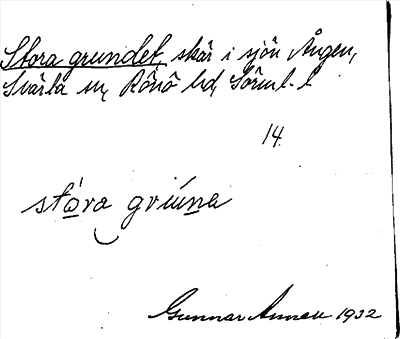 Stora grundet, skär i sjön Ången,
Svärta sn, Rönö hd, Sörml. l.
14.
stora grúna
Gunnar 1932